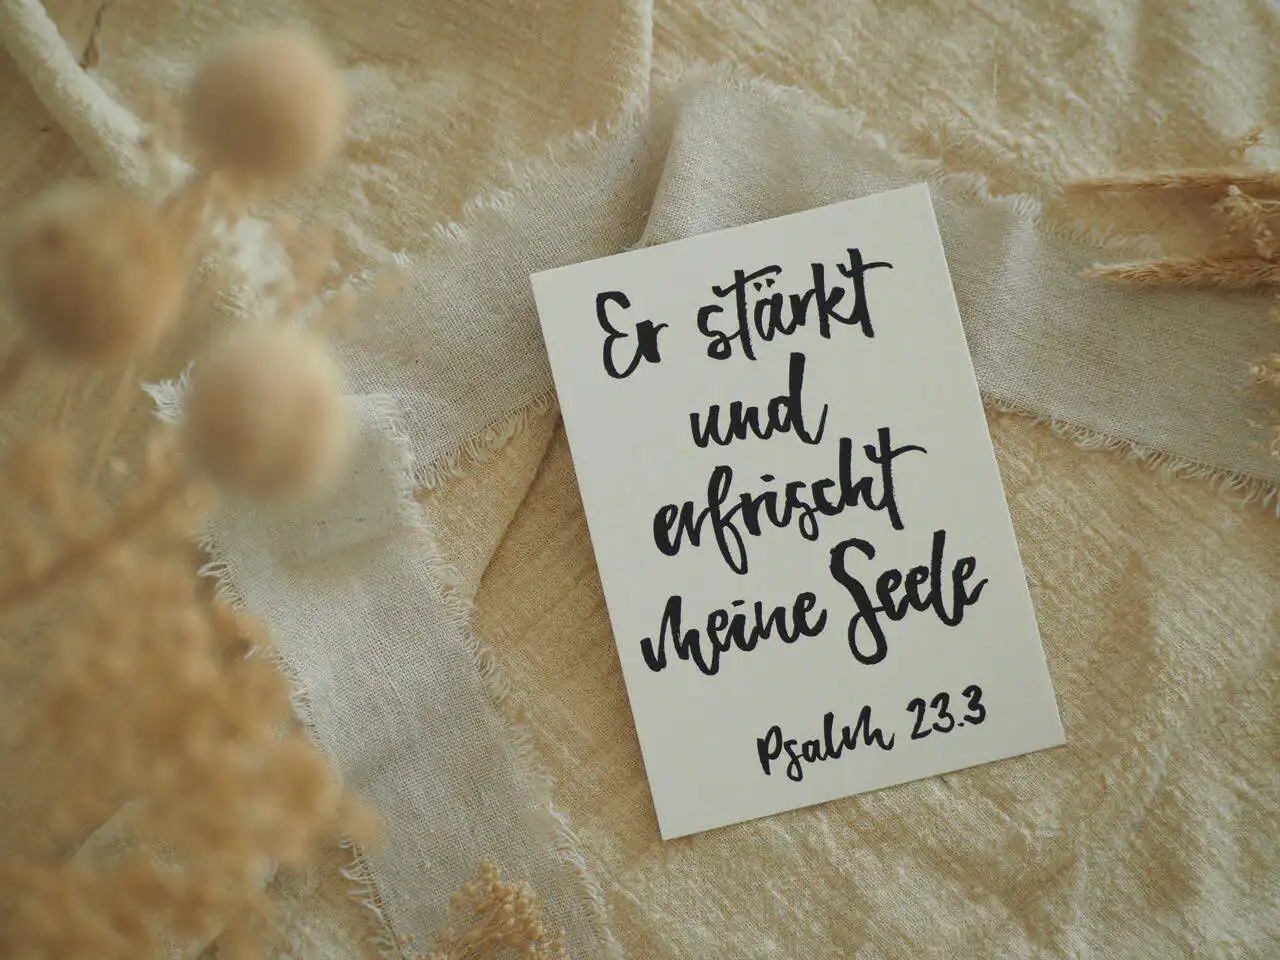 Er stärkt
und
erfrischt
meine Seele
Psalm 23.3